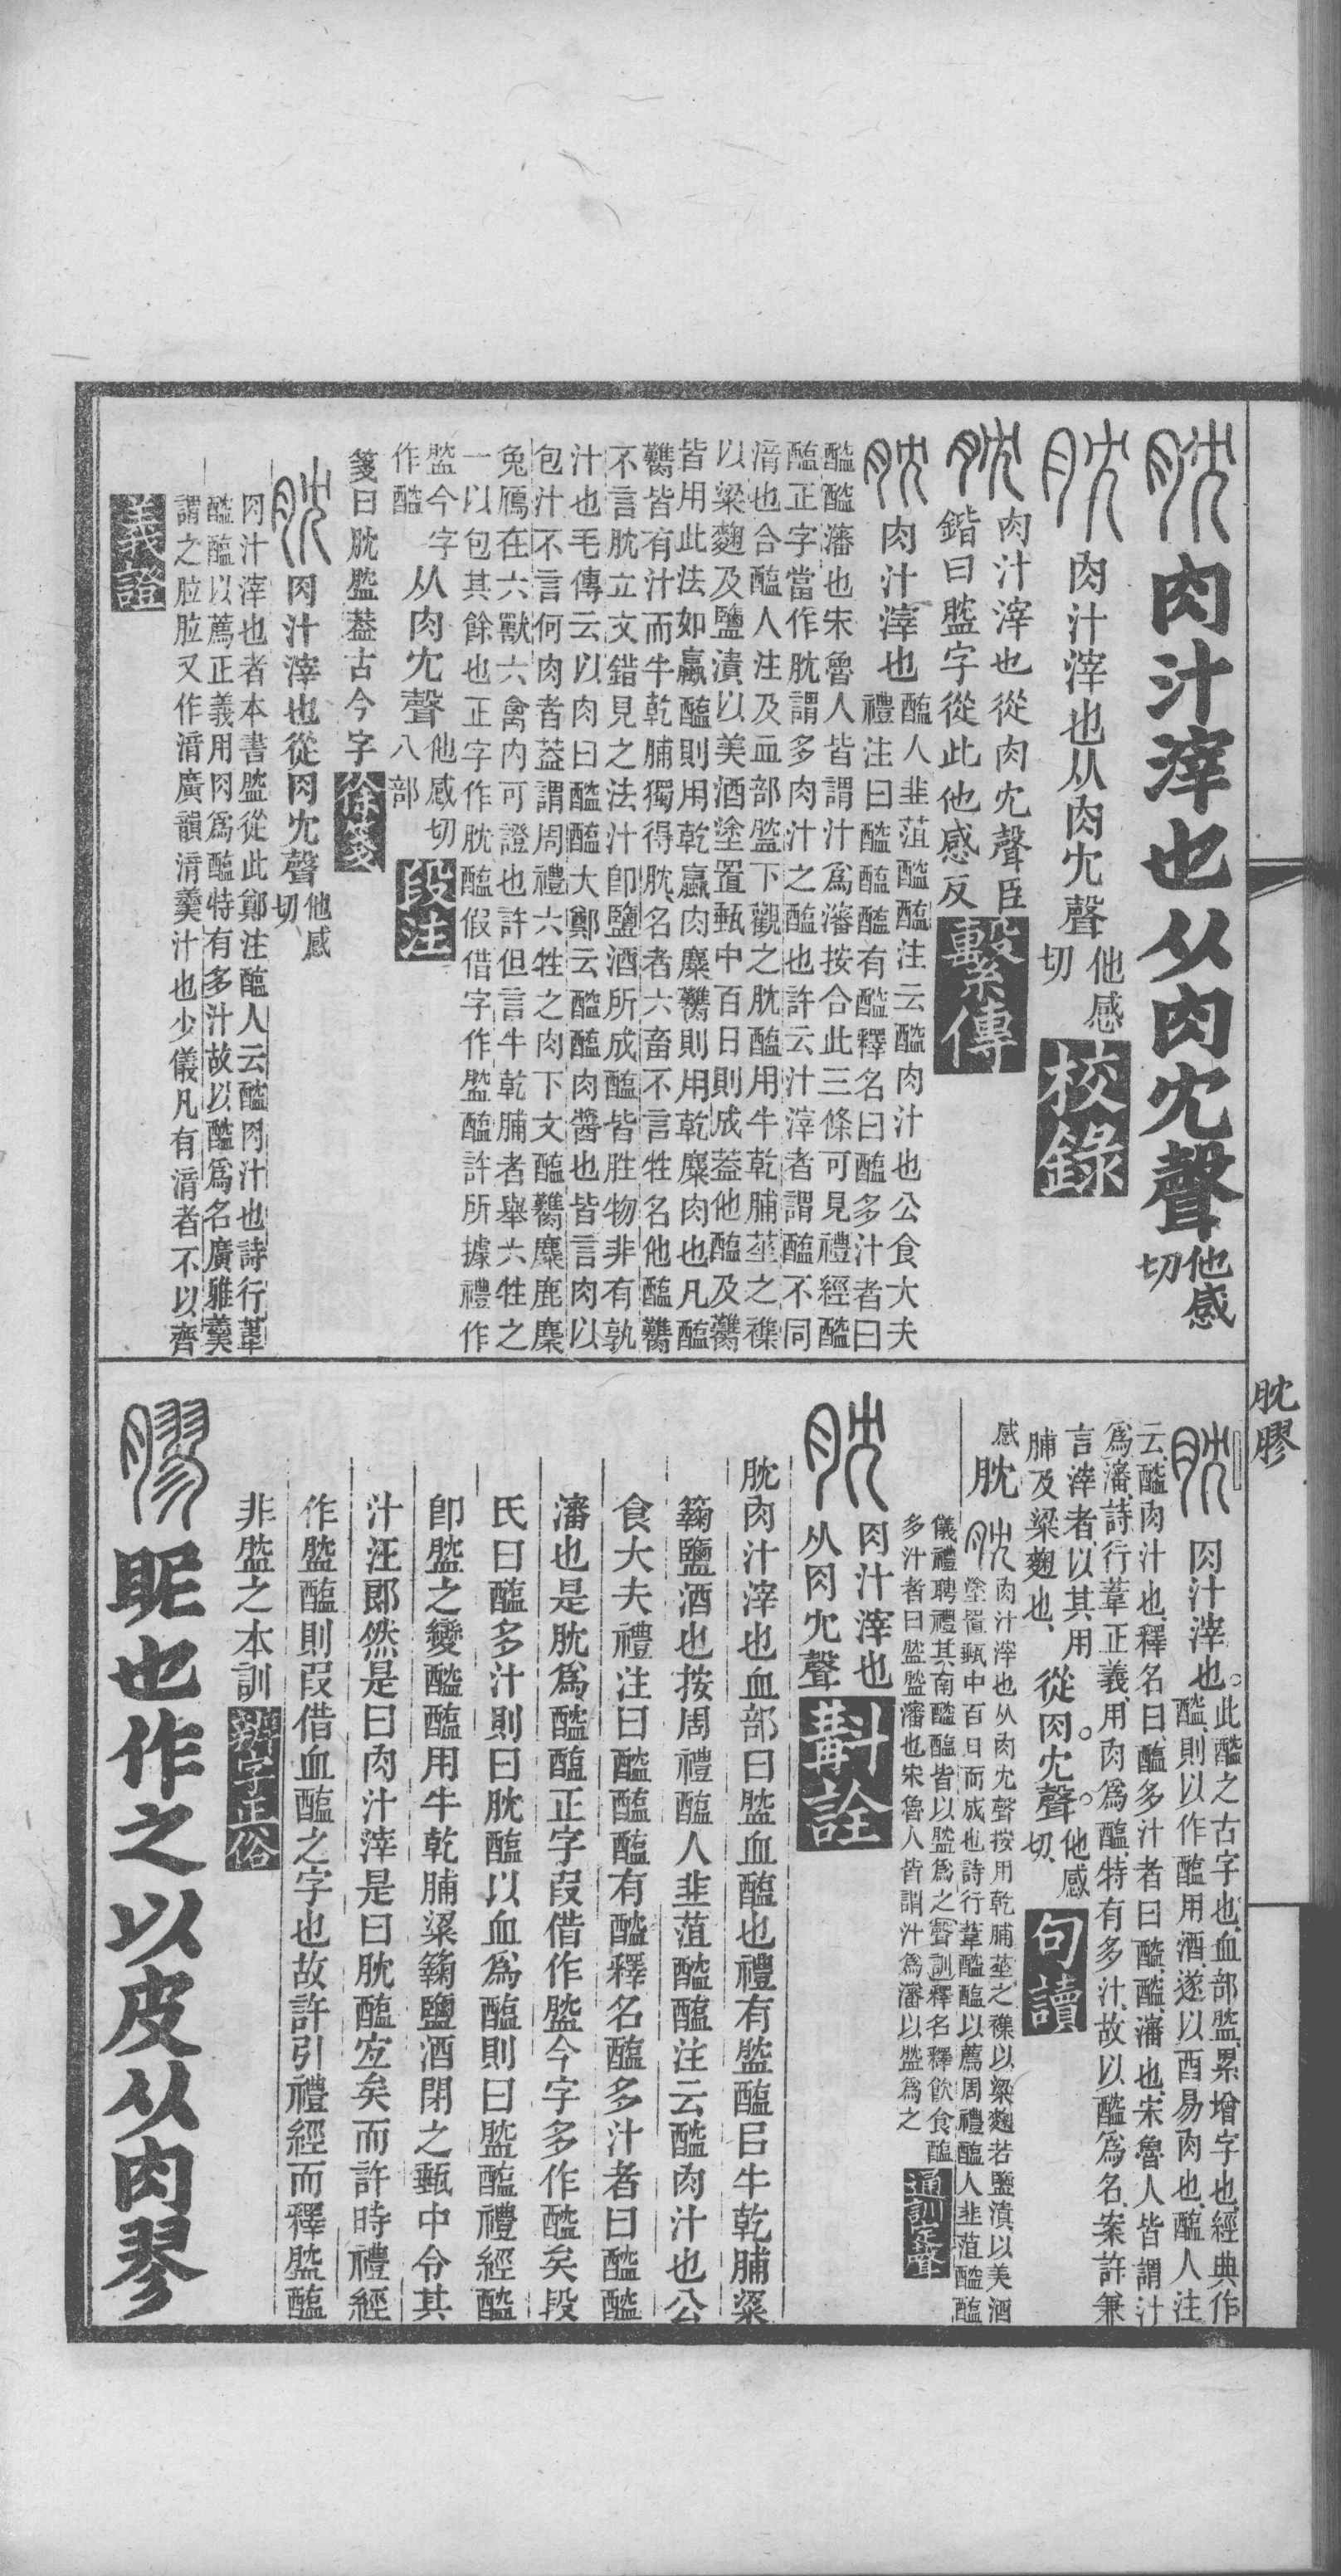 肬 肉汁滓也从肉冘聲他感切
肉汁滓也从肉冘聲他感切 校錄
肉汁滓也從肉冘聲臣
鍇曰䀋字從此他感反 繫傳
肉汁滓也
醢人韭菹醓醢注云醓肉汁也公食大夫
禮注曰醓醢醢有醓釋名曰醢多汁者曰
醓醓瀋也宋魯人皆謂汁爲瀋按合此三條可見禮經醓
醢正字當作肬謂多肉汁之醢也許云汁滓者謂醢不同
湆也合醢人注及血部䀋下觀之肬醢用牛乾脯莝之襍
以粱麴及鹽漬以美酒塗置甄中百日則成葢他醢及臡
皆用此法如蠃醢則用乾蠃肉麋臡則用乾麋肉也凡醢
臡皆有汁而牛乾脯獨得肬名者六畜不言牲名他醢臡
不言肬立文錯見之法汁卽鹽酒所成醢皆胜物非有孰
汁也毛傳云以肉曰醓醢大鄭云醓醢肉醬也皆言肉以
包汁不言何肉者葢謂周禮六牲之肉下文醢臡麋鹿麇
兔鴈在六獸六禽内可證也許但言牛乾脯者舉六牲之
一以包其餘也正字作肬醢假借字作䀋醢許所據禮作
䀋今字
作醓
从肉冘聲
他感切
八部
段注
箋曰肬䀋葢古今字 徐箋
肉汁滓也從肉冘聲他感切
肉汁滓也者本書䀋從此鄭注醢人云醓肉汁也詩行葦
醓醢以薦正義用肉爲醢特有多汁故以醓爲名廣雅羹
謂之䏠䏠又作湆廣韻湆羹汁也少儀凡有湆者不以齊
義證
肬膠
肉汁滓也。
此醓之古字也血部䀋累增字也經典作
醓則以作醢用酒遂以酉易肉也醢人注
云醓肉汁也釋名曰醢多汁者曰醓醓瀋也宋魯人皆謂汁
爲瀋詩行葦正義用肉爲醢特有多汁故以醓爲名案許兼
言滓者以其用
脯及粱麴也
從肉冘聲。
他感
切
句讀
感
肬
肉汁滓也从肉冘聲按用乾脯莝之襍以粱麴若鹽漬以美酒
塗置甄中百日而成也詩行葦醓醢以薦周禮醢人韭菹醓醢
儀禮聘禮其南醓醢皆以䀋爲之聲訓釋名釋飲食醢
多汁者曰䀋䀋瀋也宋魯人皆謂汁爲瀋以䀋爲之
通訓定聲
肉汁滓也
从肉冘聲
斠詮
肬肉汁滓也血部曰䀋血醢也禮有䀋醢㠯牛乾脯粱
䴬鹽酒也按周禮醢人韭菹醓醢注云醓肉汁也公
食大夫禮注曰醓醢醢有醓釋名醢多汁者曰醓醓
瀋也是肬爲醓醢正字叚借作䀋今字多作醓矣段
氏曰醢多汁則曰肬醢以血爲醢則曰䀋醢禮經醓
卽䀋之變醓醢用牛乾脯粱䴬鹽酒閉之甄中令其
汁汪郎然是曰肉汁滓是曰肬醢宐矣而許時禮經
作䀋醢則叚借血醢之字也故許引禮經而釋䀋醢
非䀋之本訓 辨字正俗
膠 昵也作之以皮从肉翏